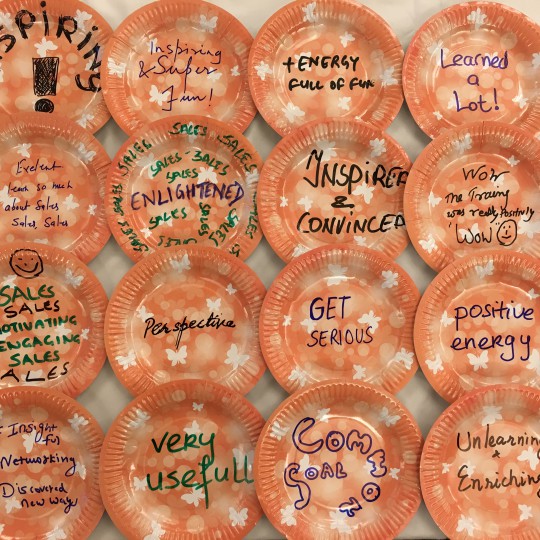 SPIRING
!
Inspiring
& Super
Fun!
+ENERGY
FULL OF FUN
Learned
a
Lot!
Exelent
Learn so much
about Sales
Sales, Sales
SALES SALES SALES SALES
SALES - SALES
SALES
ENLIGHTENED
SALES
SALES
SALES
SALES
SALES
INSPIRED
&
CONVINCED
Wow
The Training
was really, Positively
"Wow"
SALES
SALES
MOTIVATING
ENGAGING
SALES
SALES
Perspective
GET
SERIOUS
positive
energy
Insight
for
Networking
Discovered
new ways
very
usefull
COME
GOAL
Unlearning
+
Enriching